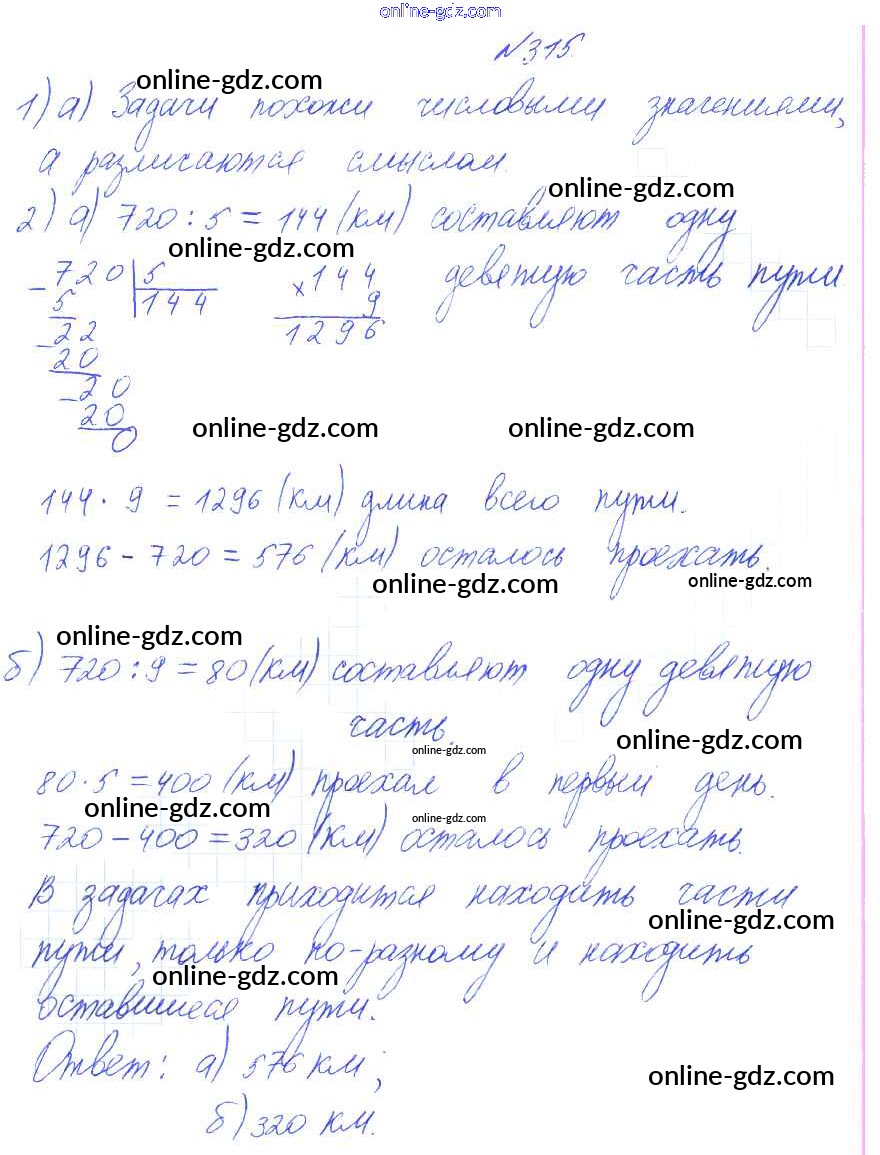 online-gdz.com
№315.
online-gdz.com
1) а) Задачи похожи числовыми значениями,
а различаются смыслом.
online-gdz.com
2) а) 720 : 5 = 144 (км) составляют одну
online-gdz.com
девятую часть пути.
- 720 | 5
5 144
- 22
20
- 20
20
0
× 144
9
1296
online-gdz.com online-gdz.com
144 · 9 = 1296 (км) длина всего пути.
1296 - 720 = 576 (км) осталось проехать.
online-gdz.com online-gdz.com
online-gdz.com
б) 720 : 9 = 80 (км) составляют одну девятую
часть.
online-gdz.com online-gdz.com
80 · 5 = 400 (км) проехал в первый день.
online-gdz.com online-gdz.com
720 - 400 = 320 (км) осталось проехать.
В задачах приходится находить части
online-gdz.com
пути, только по-разному и находить
online-gdz.com
оставшиеся пути.
Ответ: а) 576 км;
online-gdz.com
б) 320 км.